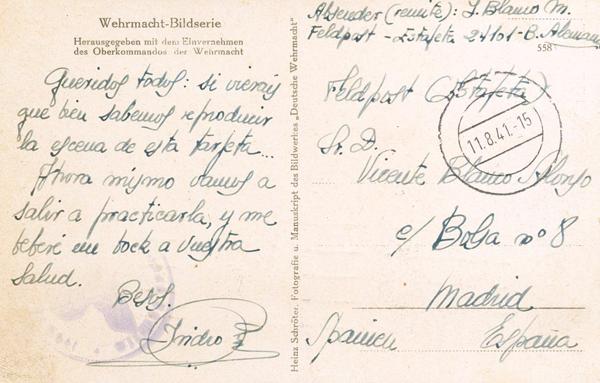 Wehrmacht-Bildserie
Herausgegeben mit dem Einvernehmen
des Oberkommandos der Wehrmacht
Queridos todos: si vierais
que bien sabemos reproducir
la escena de esta tarjeta...
Ahora mismo vamos a
salir a practicarla, y me
beberé un bock a vuestra
salud.
Besos.
Heinz Schröter. Fotografie u. Manuskript des Bildwerkes „Deutsche Wehrmacht"
Absender (remite): J. Blanco M.
Feldpost - Estafeta 24101 - B. Alemania
558
Feldpost (Estafeta)
11.8.41.-15
Sr. D.
Vicente Blanco Alonso
c/ Bolsa nº 8
Madrid
Spanien España